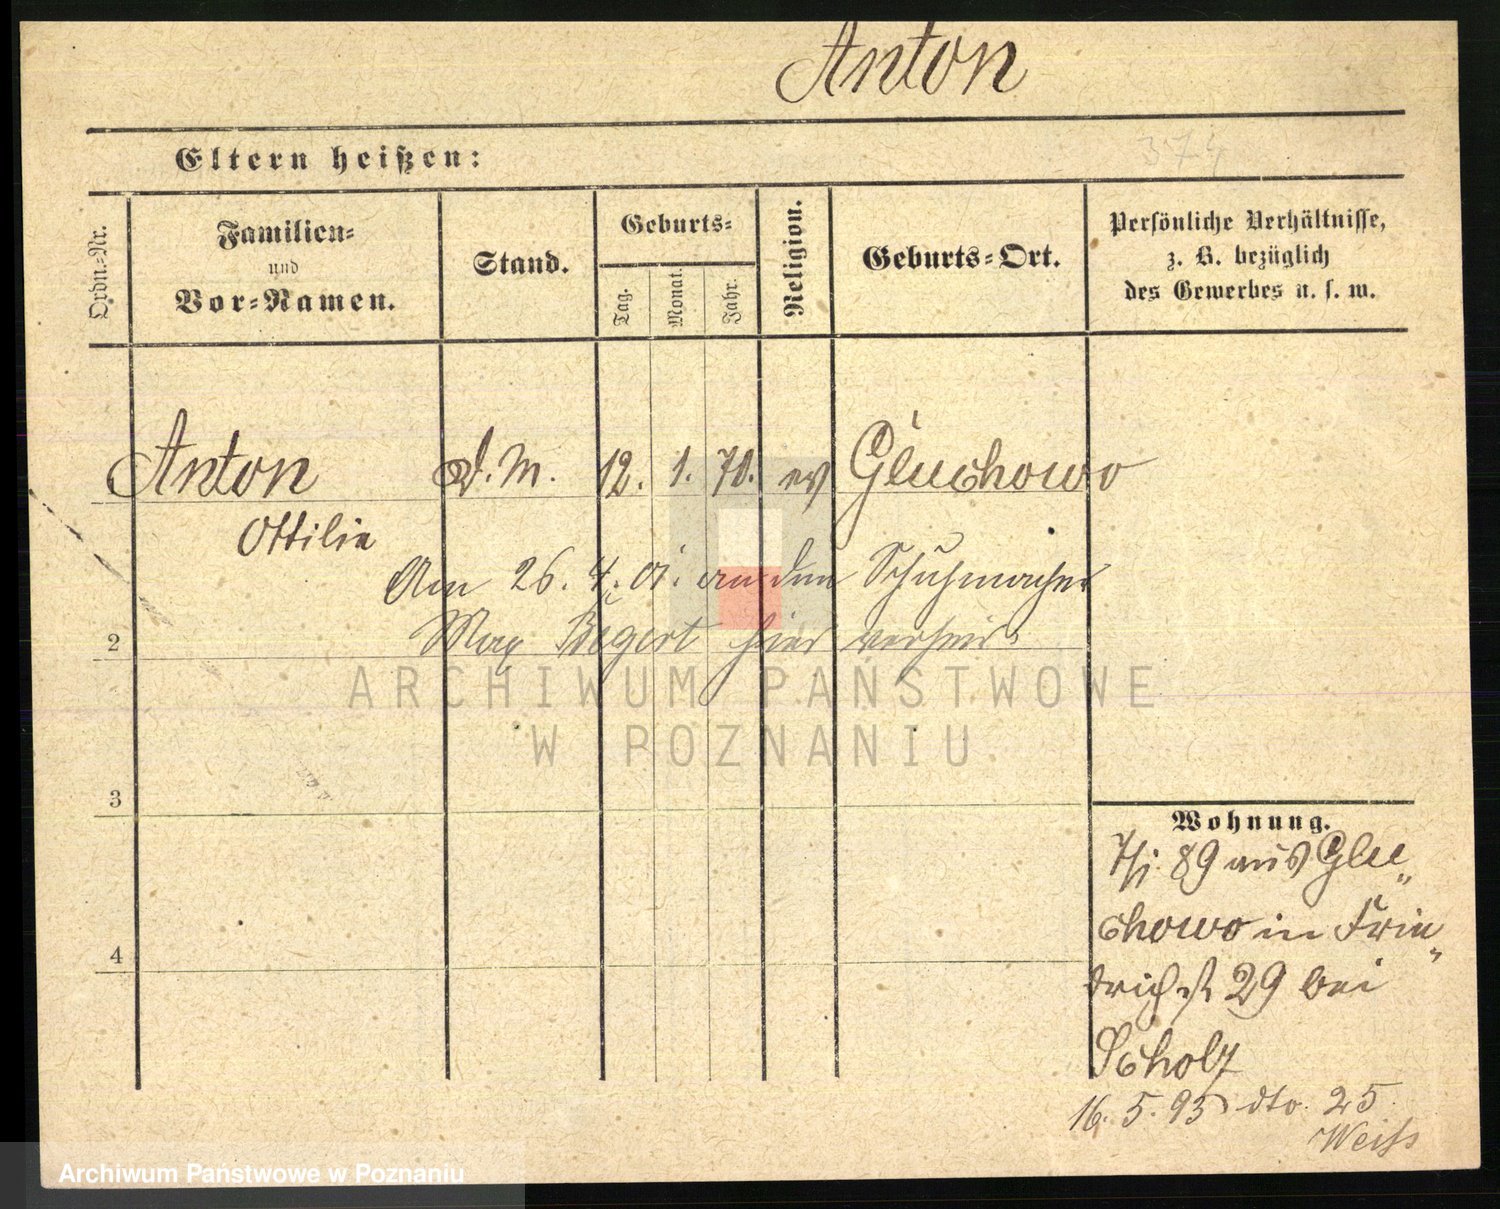 Anton
Eltern heißen:
374
Ordn.-Nr.
Familien-
und
Vor-Namen.
Stand.
Geburts-
Tag.
Monat.
Jahr.
Religion.
Geburts-Ort.
Persönliche Verhältnisse,
z. B. bezüglich
des Gewerbes u. s. w.
Anton D. M. 12. 1. 70. ev Gluchowo
Ottilie
Am 26. 4. 01. an den Schuhmacher
2
Max hier verheir.
ARCHIWUM PAŃSTWOWE
W POZNANIU
3
Wohnung.
89 aus Glu„
chowo in Frie„
4
drichst 29 bei
Scholz
16. 5. 93 dto. 25
Weiss
Archiwum Państwowe w Poznaniu